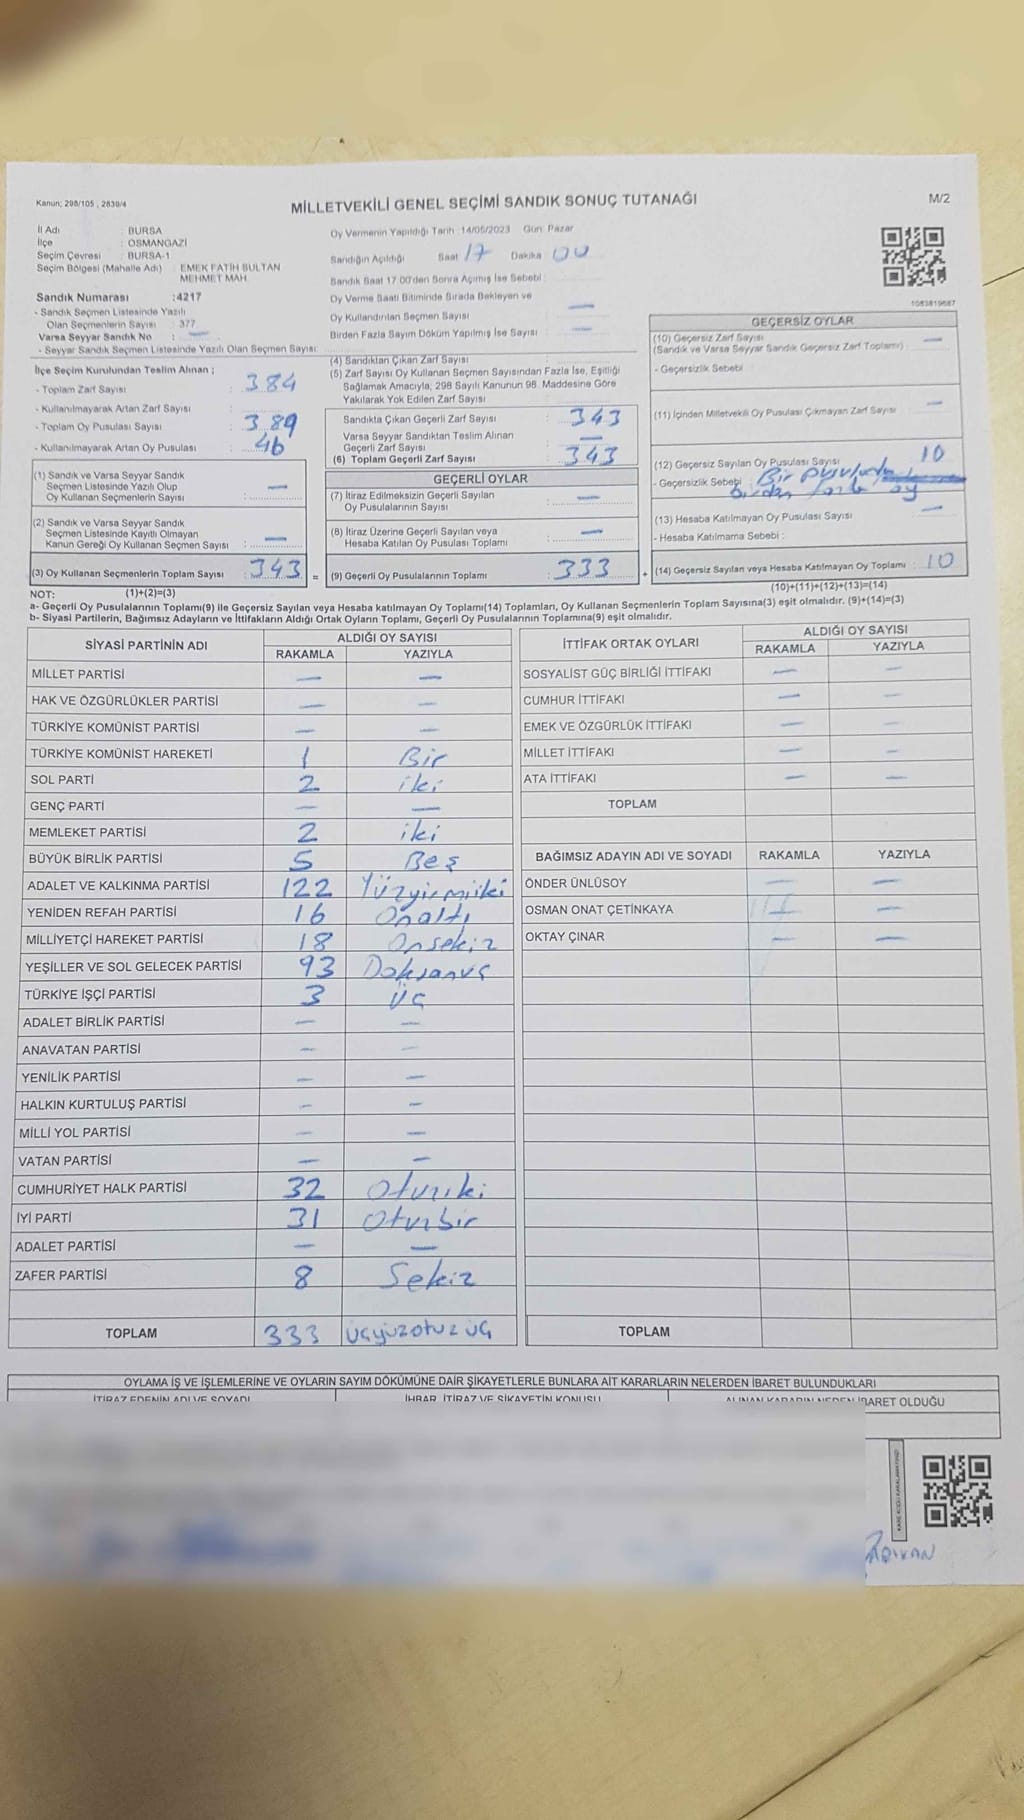 Kanun; 298/105 , 2839/4
MİLLETVEKİLİ GENEL SEÇİMİ SANDIK SONUÇ TUTANAĞI
M/2
İl Adı : BURSA
İlçe : OSMANGAZİ
Seçim Çevresi : BURSA-1
Seçim Bölgesi (Mahalle Adı) : EMEK FATİH SULTAN
MEHMET MAH.
Sandık Numarası :4217
- Sandık Seçmen Listesinde Yazılı
Olan Seçmenlerin Sayısı : 377
Varsa Seyyar Sandık No : —
- Seyyar Sandık Seçmen Listesinde Yazılı Olan Seçmen Sayısı:
İlçe Seçim Kurulundan Teslim Alınan ;
- Toplam Zarf Sayısı : 384
- Kullanılmayarak Artan Zarf Sayısı :
- Toplam Oy Pusulası Sayısı : 389
- Kullanılmayarak Artan Oy Pusulası : 46
(1) Sandık ve Varsa Seyyar Sandık
Seçmen Listesinde Yazılı Olup
Oy Kullanan Seçmenlerin Sayısı : —
(2) Sandık ve Varsa Seyyar Sandık
Seçmen Listesinde Kayıtlı Olmayan
Kanun Gereği Oy Kullanan Seçmen Sayısı : —
(3) Oy Kullanan Seçmenlerin Toplam Sayısı : 343 =
Oy Vermenin Yapıldığı Tarih :14/05/2023 Gün: Pazar
Sandığın Açıldığı Saat 17 Dakika 00
Sandık Saat 17.00'den Sonra Açılmış İse Sebebi :
Oy Verme Saati Bitiminde Sırada Bekleyen ve
Oy Kullandırılan Seçmen Sayısı : —
Birden Fazla Sayım Döküm Yapılmış İse Sayısı : —
(4) Sandıktan Çıkan Zarf Sayısı :
(5) Zarf Sayısı Oy Kullanan Seçmen Sayısından Fazla İse, Eşitliği
Sağlamak Amacıyla, 298 Sayılı Kanunun 98. Maddesine Göre
Yakılarak Yok Edilen Zarf Sayısı :
Sandıkta Çıkan Geçerli Zarf Sayısı : 343
Varsa Seyyar Sandıktan Teslim Alınan
Geçerli Zarf Sayısı : —
(6) Toplam Geçerli Zarf Sayısı : 343
GEÇERLİ OYLAR
(7) İtiraz Edilmeksizin Geçerli Sayılan
Oy Pusulalarının Sayısı : —
(8) İtiraz Üzerine Geçerli Sayılan veya
Hesaba Katılan Oy Pusulası Toplamı : —
(9) Geçerli Oy Pusulalarının Toplamı : 333 +
1083819687
GEÇERSİZ OYLAR
(10) Geçersiz Zarf Sayısı : —
(Sandık ve Varsa Seyyar Sandık Geçersiz Zarf Toplamı)
- Geçersizlik Sebebi :
(11) İçinden Milletvekili Oy Pusulası Çıkmayan Zarf Sayısı : —
(12) Geçersiz Sayılan Oy Pusulası Sayısı : 10
- Geçersizlik Sebebi : Bir pusulada
birden fazla oy
(13) Hesaba Katılmayan Oy Pusulası Sayısı : —
- Hesaba Katılmama Sebebi :
(14) Geçersiz Sayılan veya Hesaba Katılmayan Oy Toplamı : 10
NOT: (1)+(2)=(3)
(10)+(11)+(12)+(13)=(14)
a- Geçerli Oy Pusulalarının Toplamı(9) ile Geçersiz Sayılan veya Hesaba katılmayan Oy Toplamı(14) Toplamları, Oy Kullanan Seçmenlerin Toplam Sayısına(3) eşit olmalıdır. (9)+(14)=(3)
b- Siyasi Partilerin, Bağımsız Adayların ve İttifakların Aldığı Ortak Oyların Toplamı, Geçerli Oy Pusulalarının Toplamına(9) eşit olmalıdır.
SİYASİ PARTİNİN ADI ALDIĞI OY SAYISI
RAKAMLA YAZIYLA
MİLLET PARTİSİ — —
HAK VE ÖZGÜRLÜKLER PARTİSİ — —
TÜRKİYE KOMÜNİST PARTİSİ — —
TÜRKİYE KOMÜNİST HAREKETİ 1 Bir
SOL PARTİ 2 iki
GENÇ PARTİ — —
MEMLEKET PARTİSİ 2 iki
BÜYÜK BİRLİK PARTİSİ 5 Beş
ADALET VE KALKINMA PARTİSİ 122 Yüzyirmiiki
YENİDEN REFAH PARTİSİ 16 Onaltı
MİLLİYETÇİ HAREKET PARTİSİ 18 Onsekiz
YEŞİLLER VE SOL GELECEK PARTİSİ 93 Doksanüç
TÜRKİYE İŞÇİ PARTİSİ 3 Üç
ADALET BİRLİK PARTİSİ — —
ANAVATAN PARTİSİ — —
YENİLİK PARTİSİ — —
HALKIN KURTULUŞ PARTİSİ — —
MİLLİ YOL PARTİSİ — —
VATAN PARTİSİ — —
CUMHURİYET HALK PARTİSİ 32 Otuziki
İYİ PARTİ 31 Otuzbir
ADALET PARTİSİ — —
ZAFER PARTİSİ 8 Sekiz
TOPLAM 333 Üçyüzotuzüç
İTTİFAK ORTAK OYLARI ALDIĞI OY SAYISI
RAKAMLA YAZIYLA
SOSYALİST GÜÇ BİRLİĞİ İTTİFAKI — —
CUMHUR İTTİFAKI — —
EMEK VE ÖZGÜRLÜK İTTİFAKI — —
MİLLET İTTİFAKI — —
ATA İTTİFAKI — —
TOPLAM
BAĞIMSIZ ADAYIN ADI VE SOYADI RAKAMLA YAZIYLA
ÖNDER ÜNLÜSOY — —
OSMAN ONAT ÇETİNKAYA — —
OKTAY ÇINAR — —
TOPLAM
OYLAMA İŞ VE İŞLEMLERİNE VE OYLARIN SAYIM DÖKÜMÜNE DAİR ŞİKAYETLERLE BUNLARA AİT KARARLARIN NELERDEN İBARET BULUNDUKLARI
İTİRAZ EDENİN ADI VE SOYADI İHBAR, İTİRAZ VE ŞİKAYETİN KONUSU ALINAN KARARIN NEDEN İBARET OLDUĞU